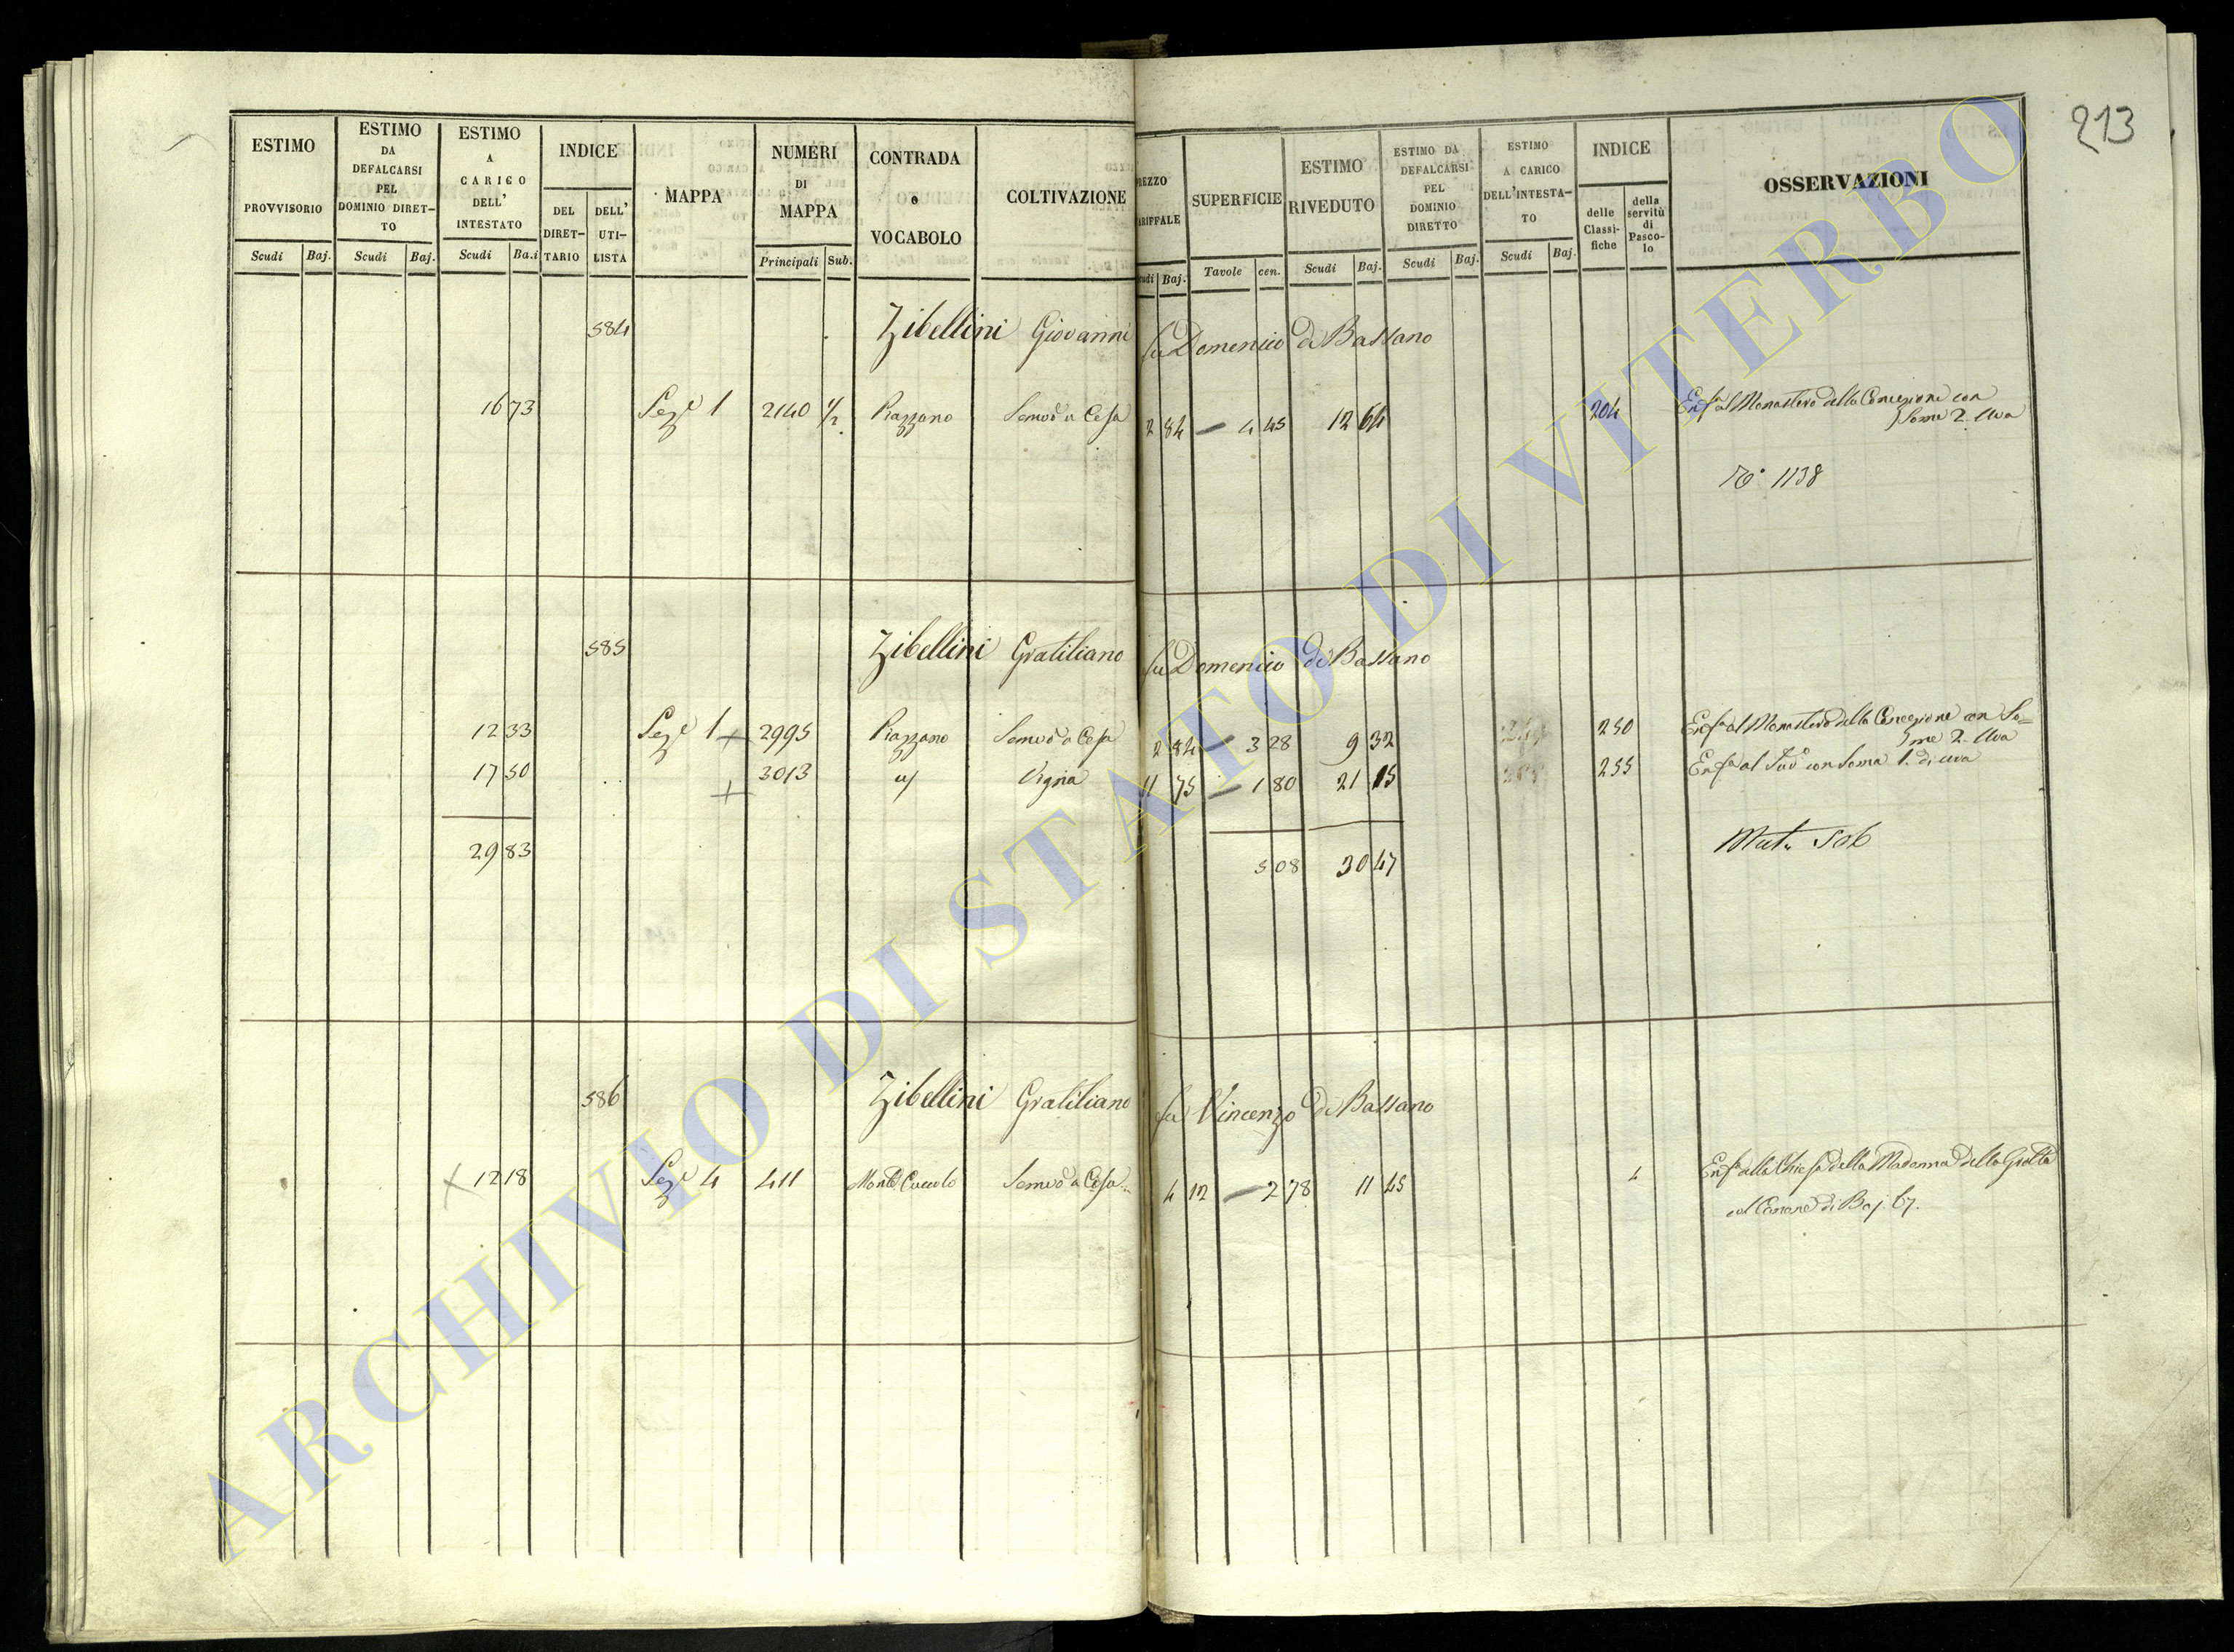 213
ESTIMO PROVVISORIO Scudi Baj.
ESTIMO DA DEFALCARSI PEL DOMINIO DIRET-TO Scudi Baj.
ESTIMO A CARICO DELL' INTESTATO Scudi Ba.i
INDICE DEL DIRET-TARIO DELL' UTI-LISTA
MAPPA
NUMERI DI MAPPA Principali Sub.
CONTRADA o VOCABOLO
COLTIVAZIONE
REZZO ARIFFALE cudi Baj.
SUPERFICIE Tavole cen.
ESTIMO RIVEDUTO Scudi Baj.
ESTIMO DA DEFALCARSI PEL DOMINIO DIRETTO Scudi Baj.
ESTIMO A CARICO DELL'INTESTA-TO Scudi Baj.
INDICE delle Classi-fiche della servitù di Pasco-lo
OSSERVAZIONI
584 Zibellini Giovanni fu Domenico di Bassano
16 73 Sez.e 1 2140 1/2 Piazzano Semvo a Cesa 2 84 4 45 12 64 204 Enfa al Monastero della Concezione con
Some 2. Uva
No 1138
585 Zibellini Gratiliano fu Domenico di Bassano
12 33 Sez.e 1 + 2995 Piazzano Semvo a Cesa 2 84 3 28 9 32 250 Enfa al Monastero della Concezione con So=
me 2. Uva
17 50 + 3013 Vigna 11 75 1 80 21 15 255 Enfa al Sudo con Soma 1. di uva
29 83 5 08 30 47 Mut. 506
586 Zibellini Gratiliano fu Vincenzo di Bassano
+ 12 18 Sez.e 4 411 Monte Cuculo Semvo a Cesa 4 12 2 78 11 45 4 Enfa alla Chiesa della Madonna della Grotta
col Canone di Baj. 67.
ARCHIVIO DI STATO DI VITERBO